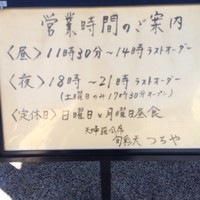 営業時間のご案内
〈昼〉11時30分〜14時ラストオーダー
〈夜〉18時〜21時ラストオーダー
(土曜日のみ17時30分オープン)
〈定休日〉日曜日と月曜日昼食
旬彩天 つちや